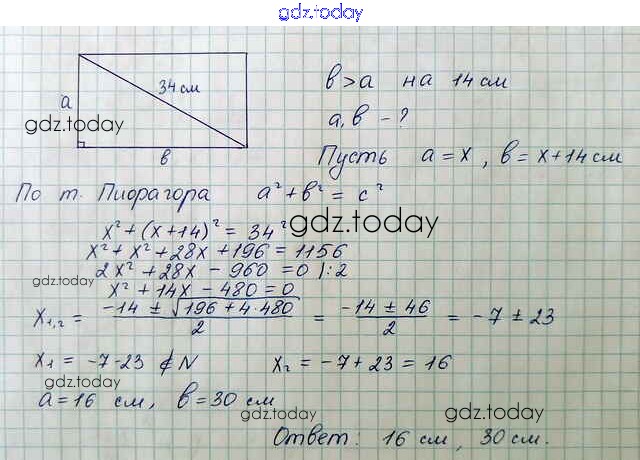 gdz.today
34 см
в > а на 14 см
а
gdz.today
а, в - ?
в
Пусть а = х , в = х + 14 см
По т. Пифагора а² + в² = с²
х² + (х + 14)² = 34²
gdz.today
х² + х² + 28х + 196 = 1156
2х² + 28х - 960 = 0 | : 2
gdz.today
х² + 14х - 480 = 0
х₁,₂ = (-14 ± √(196 + 4·480))/2 = (-14 ± 46)/2 = -7 ± 23
х₁ = -7-23 ∉ N х₂ = -7 + 23 = 16
gdz.today
а = 16 см, в = 30 см
gdz.today
gdz.today
Ответ: 16 см, 30 см.